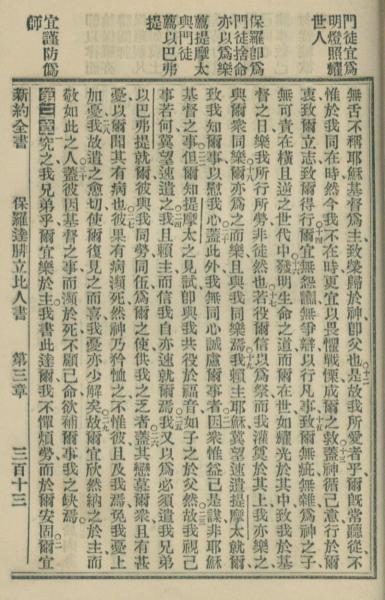 門徒宜爲
明燈照耀
世人
保羅卽爲
門徒捨命
亦以爲樂
薦提摩太
與門徒
薦以巴弗
提
宜謹防僞
師
無舌不稱耶穌基督爲主致榮歸於神卽父也是故我所愛者乎爾旣常聽從不
惟於我同在時然今我不在時更宜以畏懼戰慄成爾之救蓋神循己意行於爾
衷致爾立志致爾得行爾宜無怨讟無爭辯以行凡事致爾無疵無雜爲神之子
無可責在橫且逆之世代中發明生命之道而爾在世如耀光於其中致我於基
督之日樂我所行所勞非徒然也若役爾信以爲祭而我灌奠於其上我亦樂之
與爾衆同樂爾亦爲之而樂且與我同樂焉我賴主耶穌冀望速遣提摩太就爾
致我知爾事以慰我心蓋此外我無同心誠慮爾事者因衆惟益己是謀非耶穌
基督之事但爾知提摩太之見試卽與我共役於福音如子之於父然故我視己
事若何冀望速遣之我且賴主而信我自亦速就爾焉我又以爲必須遣我兄弟
以巴弗提就爾彼與我同勞同伍爲爾之使供我之乏者蓋其戀慕爾衆且有甚
憂以爾聞其有病也彼果有病瀕死然神乃矜恤之不惟彼且及我焉免我憂上
加憂我故遣之愈切使爾復見之而喜我憂亦少解矣故爾宜欣然納之於主而
敬如此之人蓋彼因基督之事而瀕於死不顧己命欲補爾事我之缺焉
第三章究之我兄弟乎爾宜樂於主我書此達爾我不憚煩勞而於爾安固爾宜
新約全書 保羅達腓立比人書 第三章 三百十三